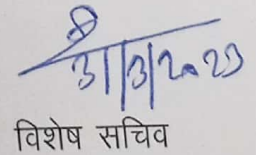 31/3/2023
विशेष सचिव